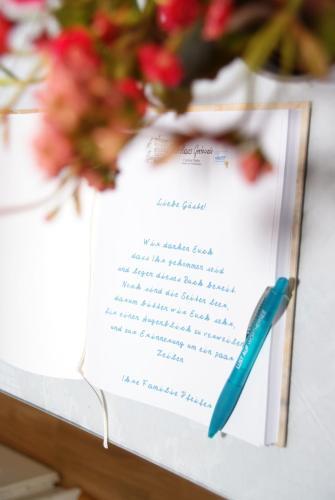 Liebe Gäste!
Wir danken Euch
dass Ihr gekommen seid
und legen dieses Buch bereit.
Noch sind die Seiten leer,
darum bitten wir Euch sehr,
Für einen Augenblick zu verweilen
und zur Erinnerung um ein paar
Zeilen
Ihre Familie Pfeifer